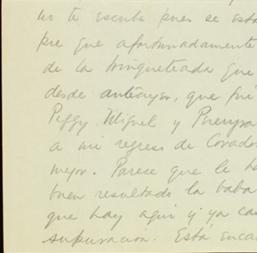 no te escribe pues se está
pre que afortunadamente
de la que
desde antier, que fué
Peggy, Miguel y
a mi regreso de
mejor. Parece que le ha
buen resultado la baba
que hay aquí y ya cas
supuración. Está encan